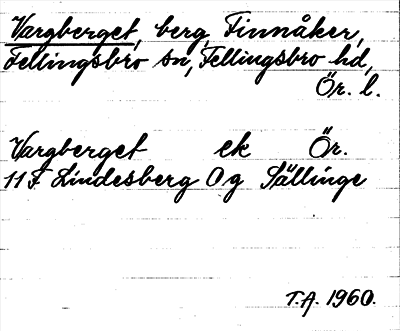 Vargberget, berg, Finnåker,
Fellingsbro sn, Fellingsbro hd,
Ör. l.
Vargberget ek Ör.
11F Lindesberg Og Sällinge
T.A. 1960.